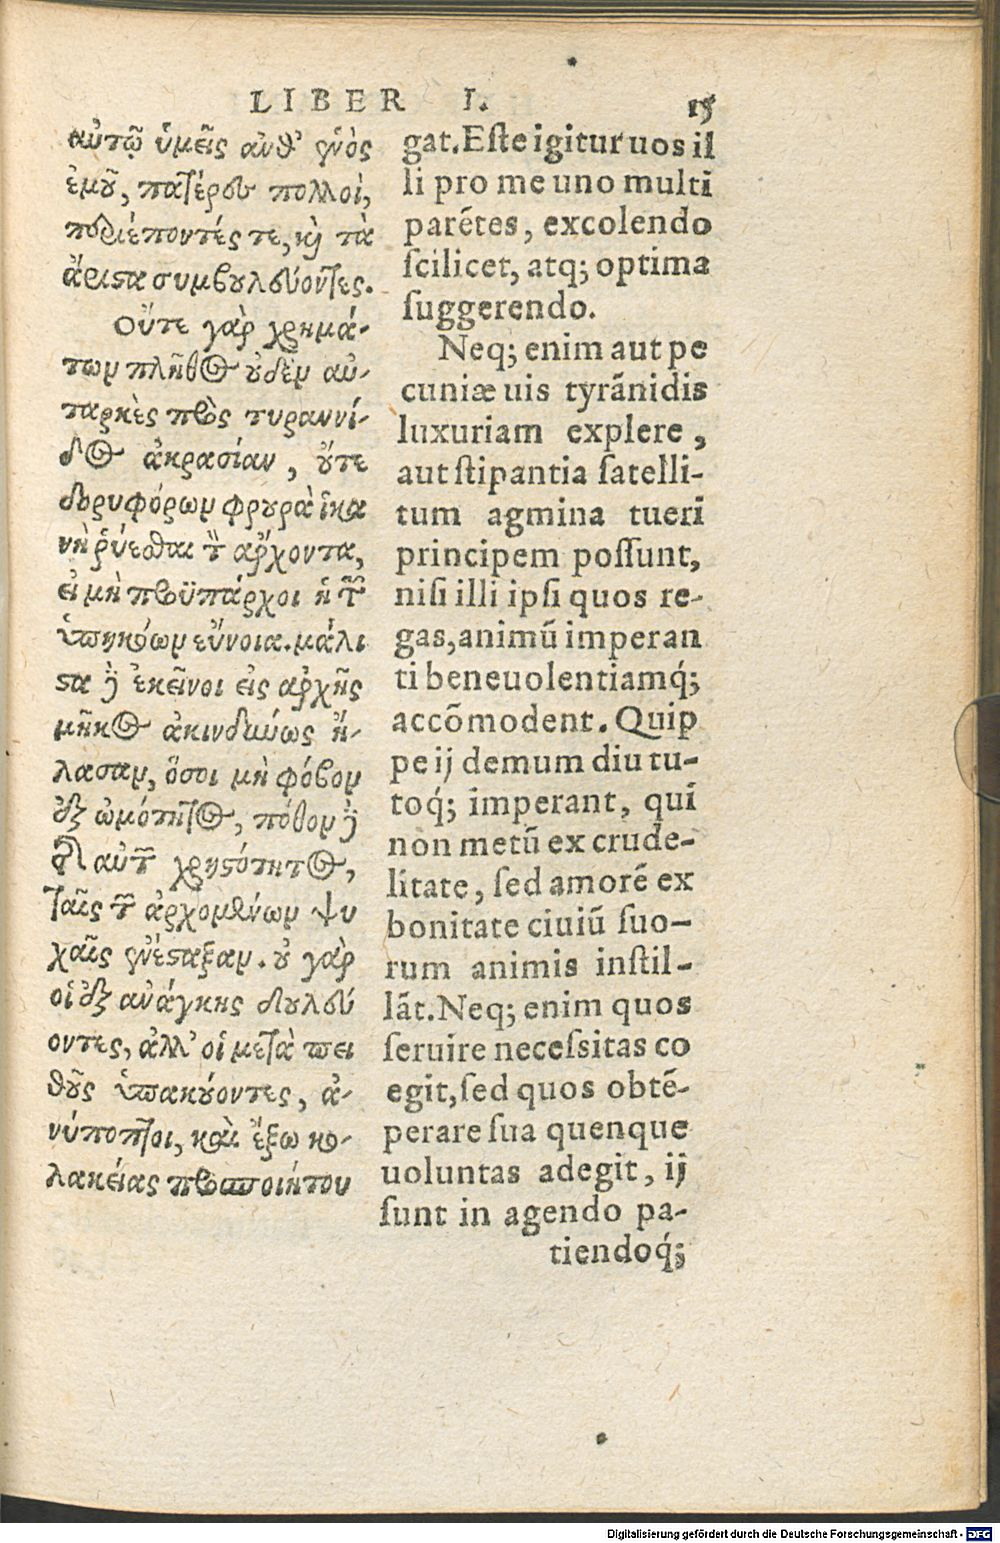 LIBER I. 15
αὐτῷ ὑμεῖς ἀνθ' ἑνὸς
ἐμοῦ, πατέρες πολλοὶ,
περιέποντές τε, καὶ τὰ
ἄριστα συμβουλεύοντες.
Οὔτε γὰρ χρημά-
των πλῆθος οὐδὲν αὐ-
ταρκὲς πρὸς τυραννί-
δος ἀκρασίαν, οὔτε
δορυφόρων φρουρὰ ἱκα
νὴ ῥύεσθαι τὸν ἄρχοντα,
εἰ μὴ προϋπάρχοι ἡ τῶν
ὑπηκόων εὔνοια. μάλι
στα δὲ ἐκεῖνοι εἰς ἀρχῆς
μῆκος ἀκινδύνως ἤ-
λασαν, ὅσοι μὴ φόβον
ἐξ ὠμότητος, πόθον δὲ
διὰ αὐτῶν χρηστότητος,
ταῖς τῶν ἀρχομένων ψυ
χαῖς ἐνέσταξαν. οὐ γὰρ
οἱ ἐξ ἀνάγκης δουλεύ
οντες, ἀλλ' οἱ μετὰ πει
θοῦς ὑπακούοντες, ἀ-
νύποπτοι, καὶ ἔξω κο-
λακείας προσποιήτου
gat. Este igitur uos il
li pro me uno multi
parẽtes, excolendo
scilicet, atq; optima
suggerendo.
Neq; enim aut pe
cuniæ uis tyrãnidis
luxuriam explere,
aut stipantia satelli-
tum agmina tueri
principem possunt,
nisi illi ipsi quos re-
gas, animũ imperan
ti beneuolentiamq́;
accõmodent. Quip
pe ij demum diu tu-
toq́; imperant, qui
non metũ ex crude-
litate, sed amorẽ ex
bonitate ciuiũ suo-
rum animis instil-
lãt. Neq; enim quos
seruire necessitas co
egit, sed quos obtẽ-
perare sua quenque
uoluntas adegit, ij
sunt in agendo pa-
tiendoq́;
Digitalisierung gefördert durch die Deutsche Forschungsgemeinschaft - DFG